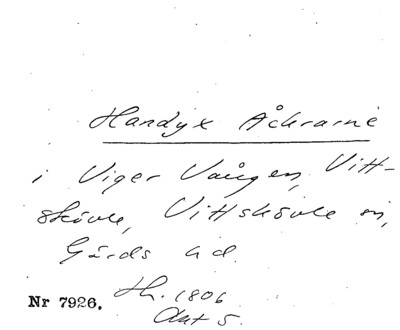 Handyx Åckrarne
i Viger Vången, Vitt-
skövle, Vittskövle sn,
Gärds hd.
Nr 7926. Th. 1806
Akt 5.